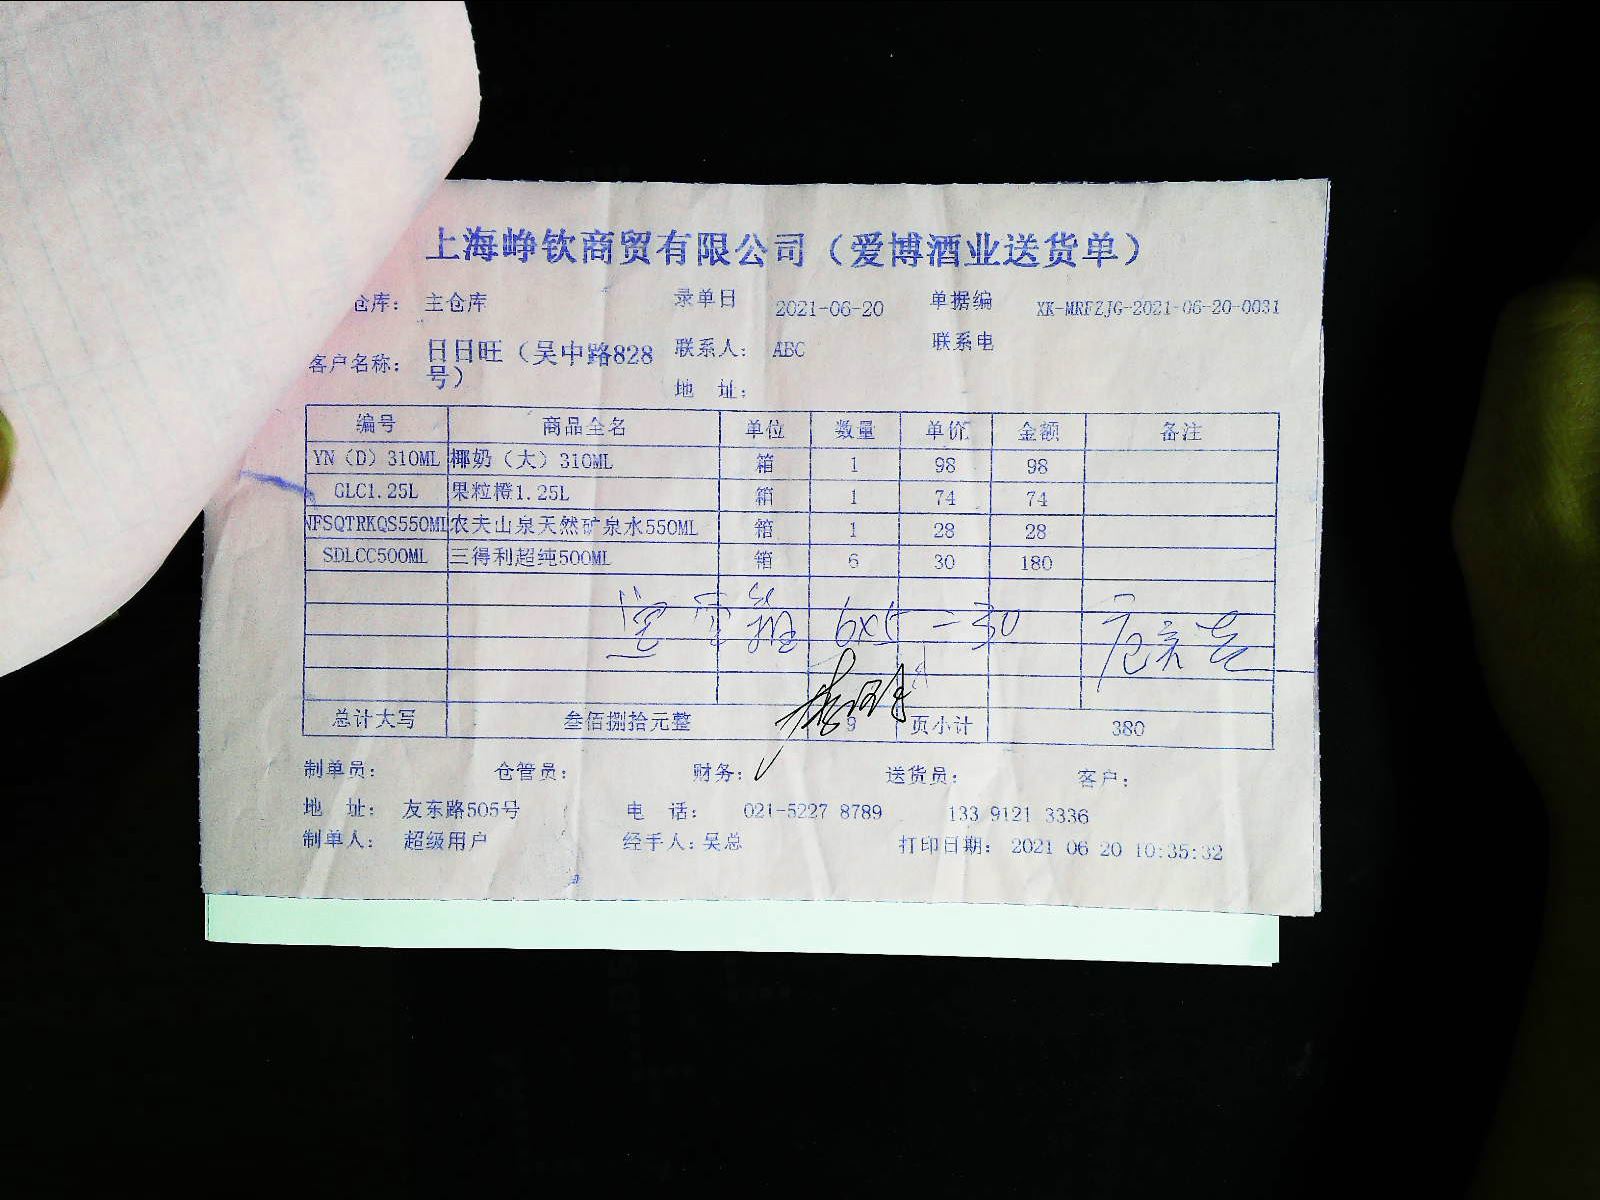 上海峥钦商贸有限公司（爱博酒业送货单）
仓库： 主仓库 录单日 2021-06-20 单据编 XK-MRFZJG-2021-06-20-0031
客户名称： 日日旺（吴中路828号） 联系人： ABC 联系电
地 址：
编号 商品全名 单位 数量 单价 金额 备注
YN（D）310ML 椰奶（大）310ML 箱 1 98 98
GLC1.25L 果粒橙1.25L 箱 1 74 74
NFSQTRKQS550ML 农夫山泉天然矿泉水550ML 箱 1 28 28
SDLCC500ML 三得利超纯500ML 箱 6 30 180
6x5=30
总计大写 叁佰捌拾元整 9 页小计 380
制单员： 仓管员： 财务： 送货员： 客户：
地 址： 友东路505号 电 话： 021-5227 8789 133 9121 3336
制单人： 超级用户 经手人：吴总 打印日期： 2021 06 20 10:35:32